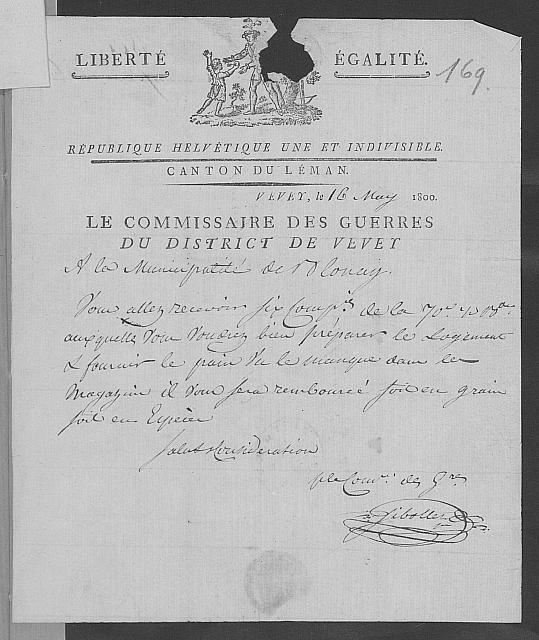 LIBERTÉ ÉGALITÉ.
169.
RÉPUBLIQUE HELVÉTIQUE UNE ET INDIVISIBLE.
CANTON DU LÉMAN.
VEVEY, le 16 May 1800.
LE COMMISSAIRE DES GUERRES
DU DISTRICT DE VEVEY
A la Municipalité de Blonay.
Vous allez recevoir six Comp.s de la 70.e
auxquelles vous voudrez bien préparer le Logement
& fournir le pain vu le manque dans les
Magazins il vous sera remboursé soit en grain
soit en Espèces
Salut & Considération
le Com.re des G.res